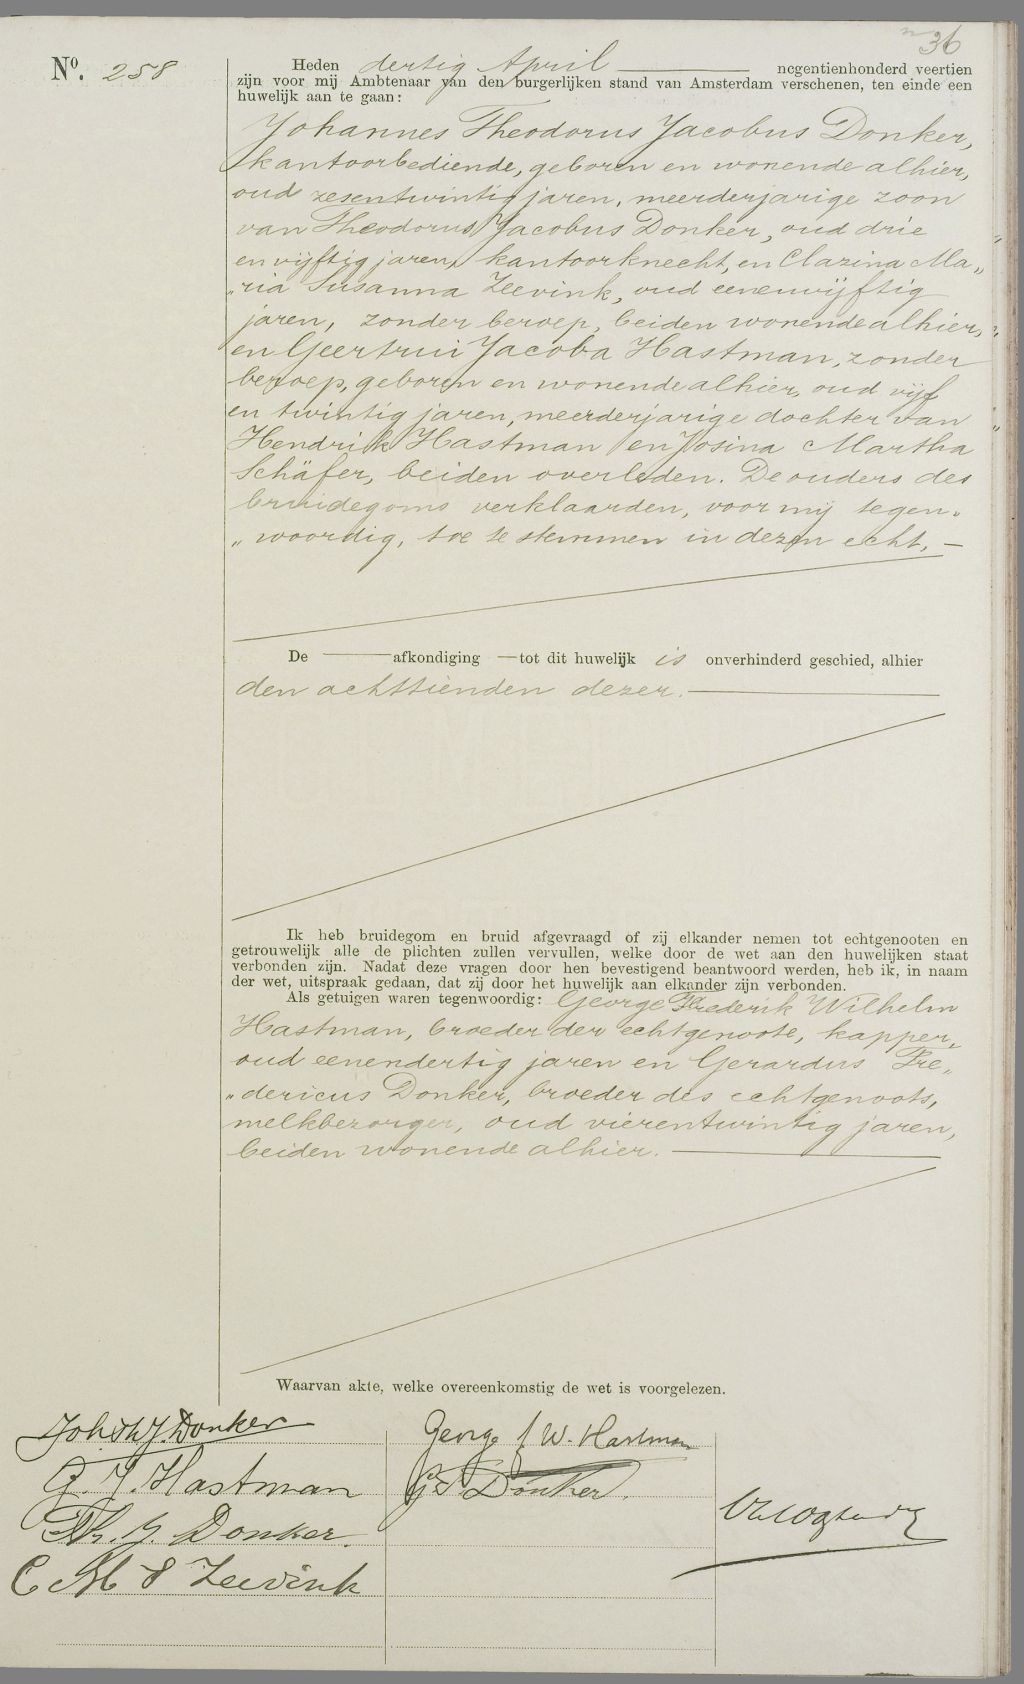 36
No. 258
Heden dertig April negentienhonderd veertien
zijn voor mij Ambtenaar van den burgerlijken stand van Amsterdam verschenen, ten einde een
huwelijk aan te gaan:
Johannes Theodorus Jacobus Donker,
kantoorbediende, geboren en wonende alhier,
oud zesentwintig jaren, meerderjarige zoon
van Theodorus Jacobus Donker, oud drie
en vijftig jaren, kantoorknecht, en Clazina Ma„
„ria Susanna Zeevink, oud eenenvijftig
jaren, zonder beroep, beiden wonende alhier,
en Geertrui Jacoba Hastman, zonder
beroep, geboren en wonende alhier, oud vijf
en twintig jaren, meerderjarige dochter van
Hendrik Hastman en Josina Martha
Schäfer, beiden overleden. De ouders des
bruidegoms verklaarden, voor mij tegen„
„woordig, toe te stemmen in dezen echt. —
De ——— afkondiging — tot dit huwelijk is onverhinderd geschied, alhier
den achttienden dezer. ———
Ik heb bruidegom en bruid afgevraagd of zij elkander nemen tot echtgenooten en
getrouwelijk alle de plichten zullen vervullen, welke door de wet aan den huwelijken staat
verbonden zijn. Nadat deze vragen door hen bevestigend beantwoord werden, heb ik, in naam
der wet, uitspraak gedaan, dat zij door het huwelijk aan elkander zijn verbonden.
Als getuigen waren tegenwoordig: George Frederik Wilhelm
Hastman, broeder der echtgenoote, kapper,
oud eenendertig jaren en Gerardus Fre„
„dericus Donker, broeder des echtgenoots,
melkbezorger, oud vierentwintig jaren,
beiden wonende alhier. ———
Waarvan akte, welke overeenkomstig de wet is voorgelezen.
Joh Th J. Donker
G. J. Hastman
Th. J. Donker.
C M S Zeevink
George f W. Hastman
G F Donker.